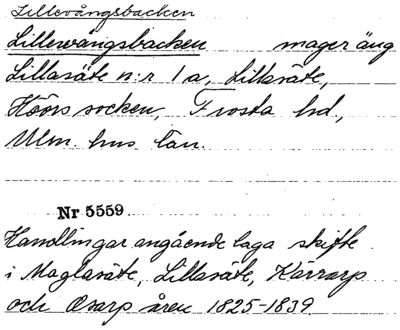 Lillevångsbacken
Lillevångsbacken mager äng
Lillasäte n:r 1 a, Lillasäte,
Höörs socken, Frosta hd,
Mlm. hus län.
Nr 5559
Handlingar angående laga skifte
i Maglasäte, Lillasäte, Kärrarp
och Osarp åren 1825-1839.